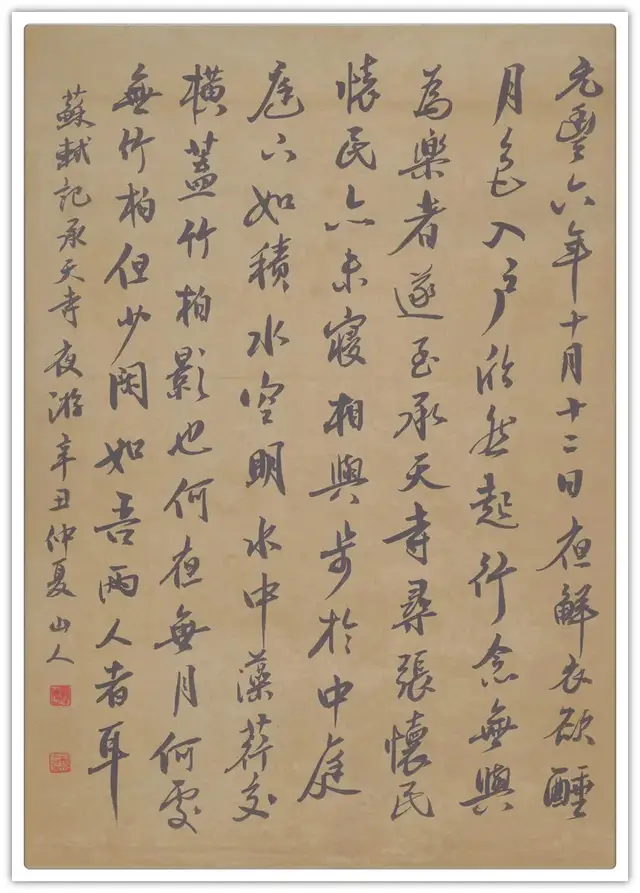 元豐六年十月十二日夜解衣欲睡
月色入户欣然起行念無與
為樂者遂至承天寺尋張懷民
懷民亦未寢相與步於中庭
庭下如積水空明水中藻荇交
橫蓋竹柏影也何夜無月何處
無竹柏但少閑如吾兩人者耳
蘇軾記承天寺夜游辛丑仲夏山人